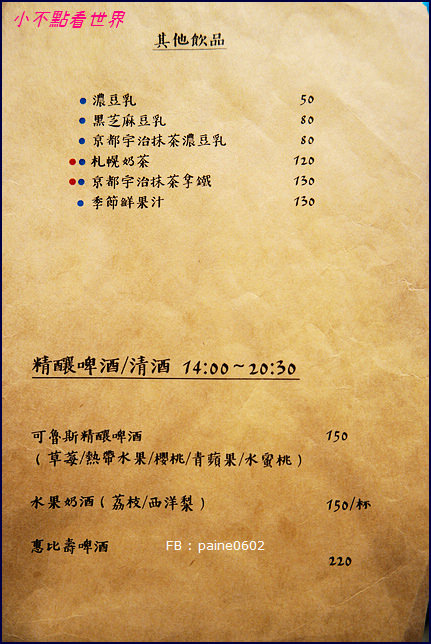 小不點看世界
其他飲品
濃豆乳 50
黑芝麻豆乳 80
京都宇治抹茶濃豆乳 80
札幌奶茶 120
京都宇治抹茶拿鐵 130
季節鮮果汁 130
精釀啤酒/清酒 14:00~20:30
可魯斯精釀啤酒 150
(草莓/熱帶水果/櫻桃/青蘋果/水蜜桃)
水果奶酒(荔枝/西洋梨) 150/杯
惠比壽啤酒 220
FB : paine0602